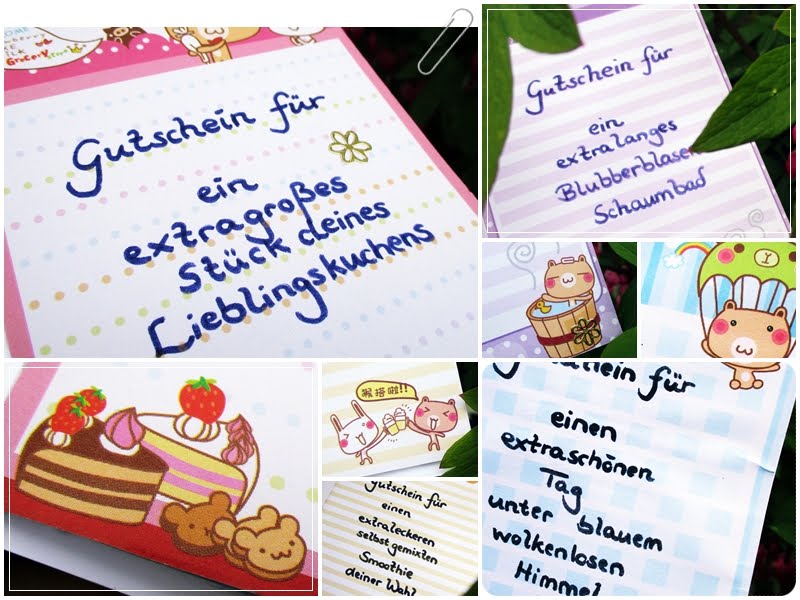 GROCERY
Gutschein für
ein
extragroßes
Stück deines
Lieblingskuchens
Gutschein für
ein
extralanges
Blubberblasen
Schaumbad
猴搭啦!!
gutschein für
einen
extraleckeren
selbstgemixten
Smoothie
deiner Wahl
für
einen
extraschönen
Tag
unter blauem
wolkenlosen
Himmel